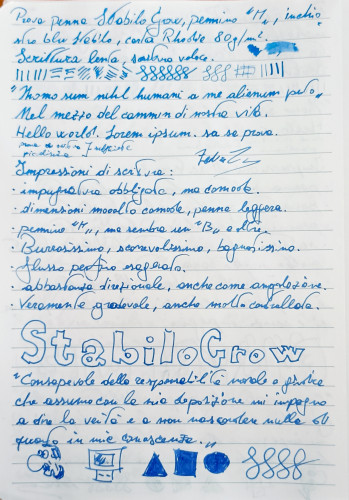 Prova penna Stabilo Grow, pennino "M", inchio
stro blu Stabilo, carta Rhodia 80g/m².
Scrittura lenta, scrittura veloce.
"Homo sum nihil humani a me alienum puto"
Nel mezzo del cammin di nostra vita.
Hello world! Lorem ipsum. sa sa prova.
prova di scrittura
più diritta
Impressioni di scrittura:
· impugnatura obbligata, ma comoda.
· dimensioni molto comode, penna leggera.
· pennino "M", ma sembra un "B" e oltre.
· Burrosissimo, scorrevolissimo, bagnatissimo.
· Flusso perfino esagerato.
· abbastanza direzionale, anche come angolazione.
· Veramente gradevole, anche molto controllata.
StabiloGrow
"Consapevole della responsabilità morale e giuridica
che assumo con la mia deposizione mi impegno
a dire la verità e a non nascondere nulla di
quanto in mia conoscenza."